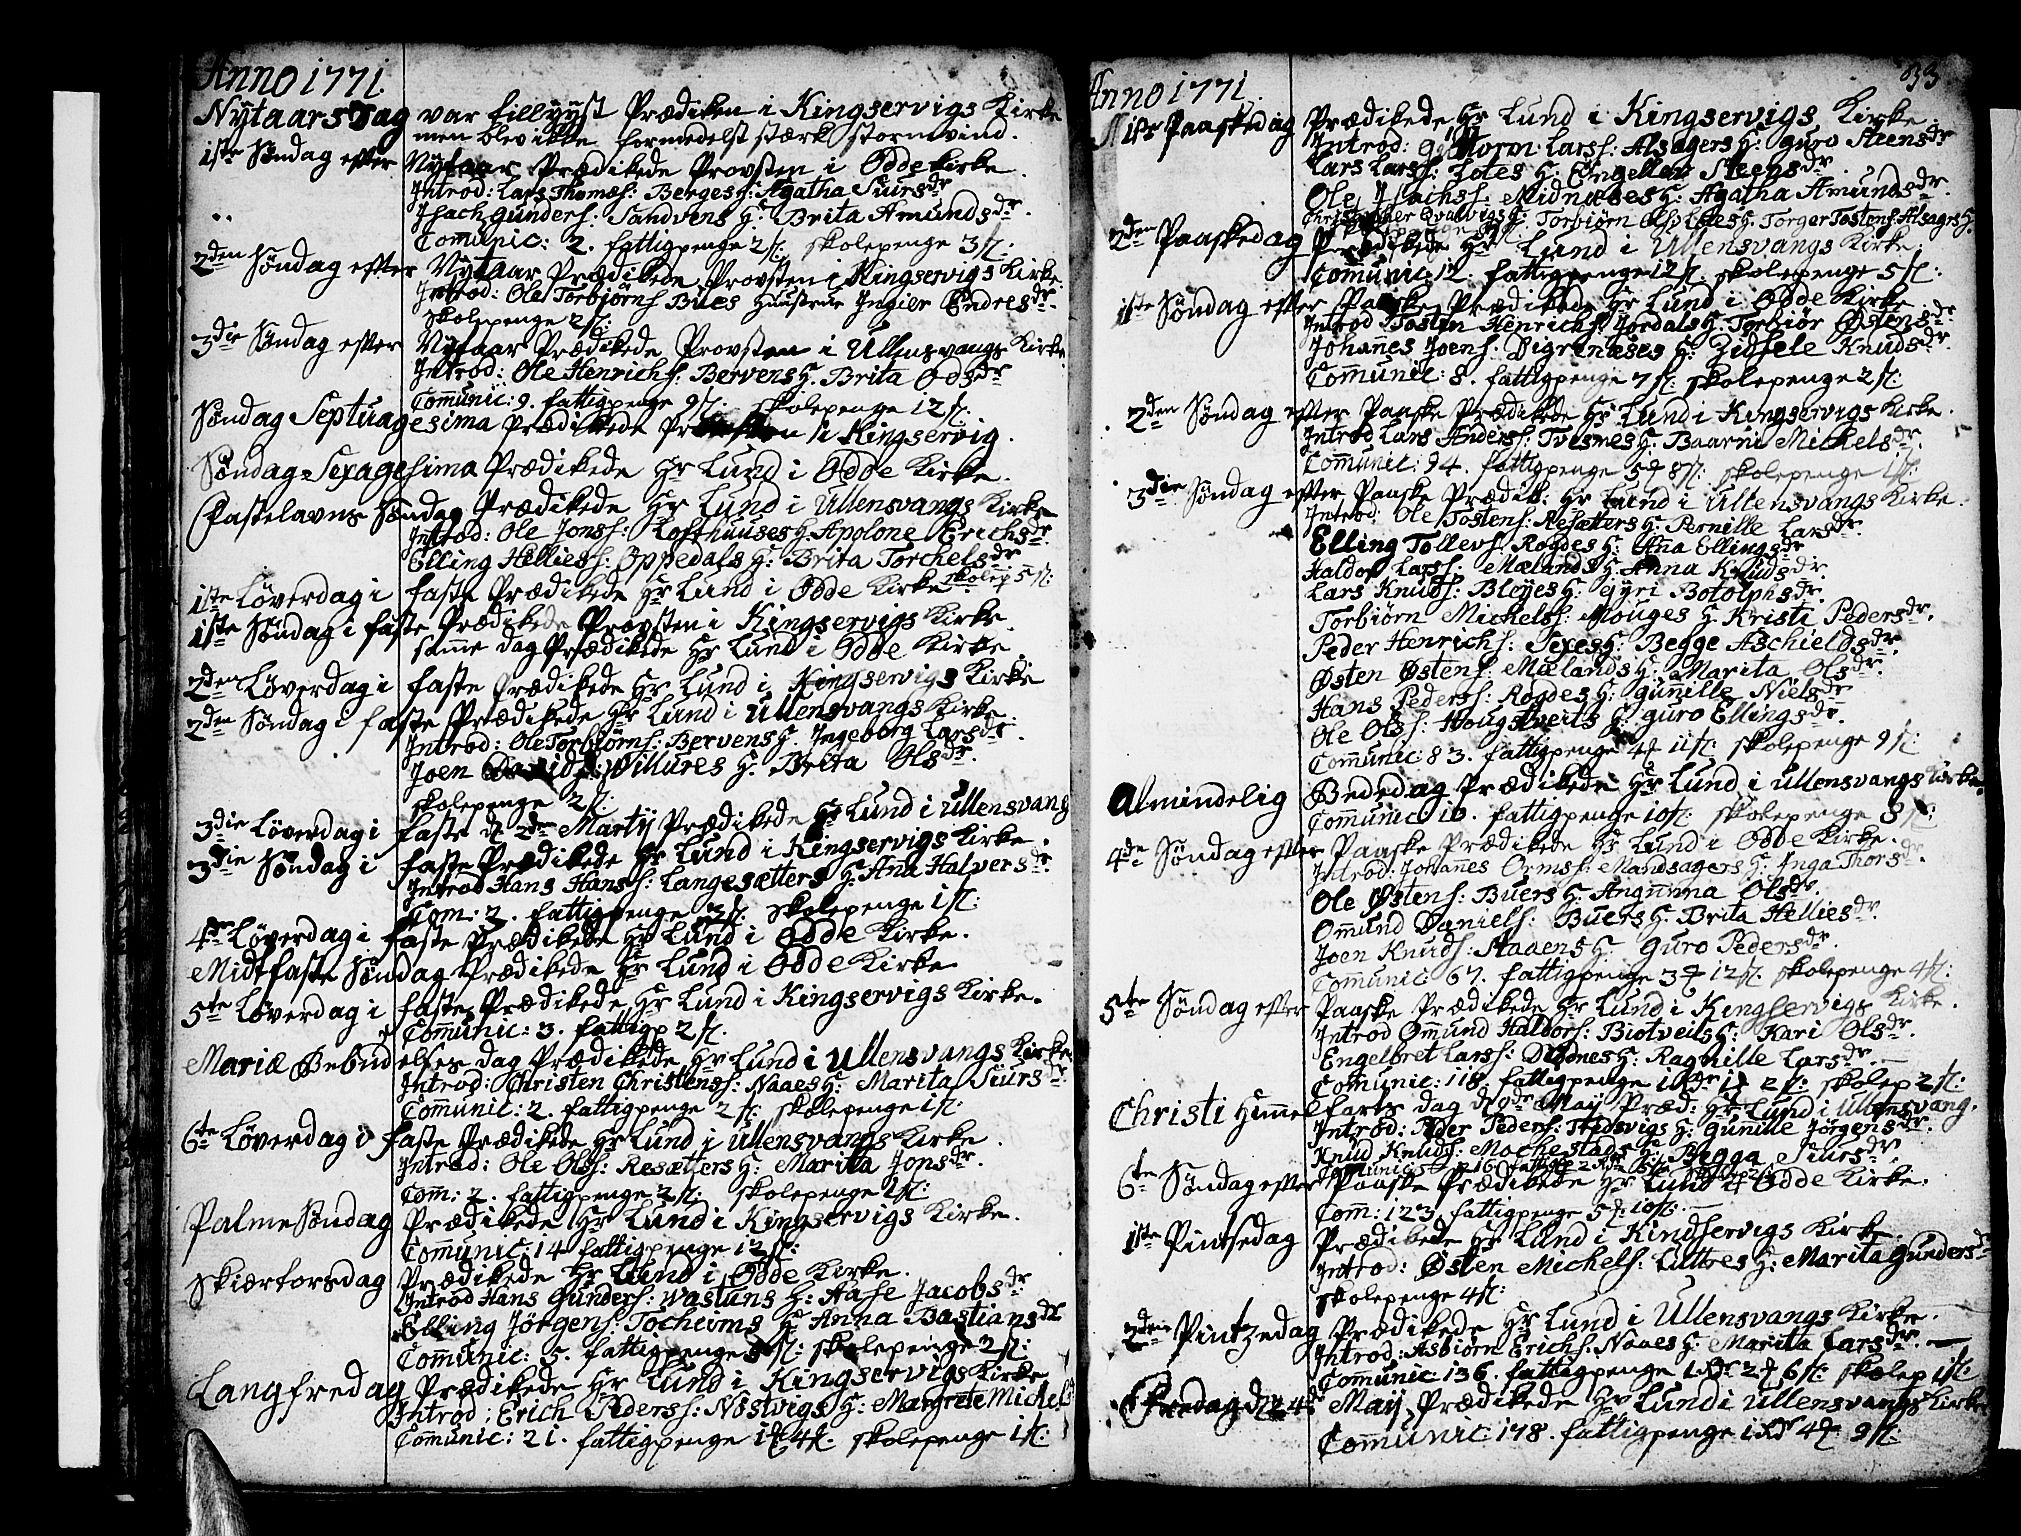 Anno 1771.
Nÿtaars Dag var tillÿst Prædiken i Kingservigs Kirke
men blev ikke formedelst stærk stormvind.
1ste Søndag efter Nÿtaar Prædikede Provsten i Odde Kirke.
Introd: Lars Thomæs: Berges H: Agatha Siurs dr
Isach Gunders: Sandvens H: Brita Amunds dr.
Comunic: 2. fattigpenge 2 s: skolepenge 3 s:
2den Søndag efter Nÿtaar Prædikede Provsten i Kingservigs Kirke
Introd: Ole Torbjörns Bues Huustrue Ingier Endres dr.
skolepenge 2 s:
3die Søndag efter Nÿtaar Prædikede Provsten i Ullensvangs Kirke
Introd: Ole Henrichs: Bervens H. Brita Ods dr
Comunic: 9. fattigpenge 9 s: skolepenge 12 s:
Søndag Septuagesima Prædikede Provsten i Kingservig.
Søndag Sexagesima Prædikede Hr Lund i Odde Kirke.
Fastelavns Søndag Prædikede Hr Lund i Ullensvangs Kirke
Introd: Ole Jonss: Lofthuuses H: Apolone Erichs dr.
Elling Hellies: Oppedals H: Brita Torchels dr
skolep 5 s:
1ste Løverdag i faste Prædikede Hr Lund i Odde Kirke
1ste Søndag i faste Prædikede Provsten i Kingservigs Kirke.
samme dag Prædikede Hr Lund i Odde Kirke.
2den Løverdag i faste Prædikede Hr Lund i Kingservigs Kirke
2den Søndag i faste Prædikede Hr Lund i Ullensvangs Kirke.
Introd: Ole Torbiörns: Bervens H. Ingeborg Lars dr.
Joen Willures H. Brita Ols dr.
skolepenge 2 s:
3die Løverdag i faste d 2dn Martij Prædikede Hr Lund i Ullensvang
3die Søndag i faste Prædikede Hr Lund i Kingservigs Kirke.
Introd Hans Hanss: Langesætters H: Ana Halvers dr.
Com: 2. fattigpenge 2 s: skolepenge 1 s:
4de Løverdag i faste Prædikede Hr Lund i Odde Kirke.
Midtfaste Søndag Prædikede Hr Lund i Odde Kirke
5te Løverdag i faste Prædikede Hr Lund i Kingservigs Kirke.
Comunic: 3. fattigp 2 s:
Mariæ Bebudelses dag Prædikede Hr Lund i Ullensvangs Kirke.
Introd: Christen Christens: Naaes H: Marita Siurs dr.
Comunic: 2. fattigpenge 2 s: skolepenge 1 s:
6te Løverdag i faste Prædikede Hr Lund i Ullensvangs Kirke.
Introd: Ole Olss: Resætters H: Marita Jons dr.
Com: 2. fattigpenge 2 s: skolepenge 1 s:
Palme Søndag Prædikede Hr Lund i Kingservigs Kirke.
Comunic: 14 fattigpenge 12 s:
Skiærtorsdag Prædikede Hr Lund i Odde Kirke.
Introd Hans Gunders: Vastuns H: Aase Jacobs dr
Elling Jörgens Tocheims H: Anna Bastians dr
Comunic: 5. fattigpenge s: skolepenge 2 s:
Langfredag Prædikede Hr Lund i Kingservigs Kirke
Introd: Erich Pederss: Nöstvigs H: Margrete Michels
Comunic: 21. fattigpenge 1 4 s. skolepenge 1 s:
33
Anno 1771.
1ste Paaskedag Prædikede Hr Lund i Kingservigs Kirke.
Introd: Guttorm Larss: Alsagers H: Guro Steens dr
Lars Larss: Lotes H: Engeller Steens dr
Ole Isachs: Midnæses H: Agatha Amunds dr.
Qvalvigs H: Torbiørn Ols: Lotes H: Torger Tostens: Alsagrs H:
2den Paaskedag Prædikede Hr Lund i Ullensvangs Kirke.
Comunic 12. fattigpenge 12 s: skolepenge 5 s:
1ste Søndag efter Paaske Prædikede Hr Lund i Odde Kirke.
Introd Tosten Henrichs: Jordals H. Torbiør Østens dr
Johannes Joens: Digrenæses H: Zidsele Knuds dr.
Comunic: 8. fattigpenge 7 s: skolepenge 2 s:
2den Søndag efter Paaske Prædikede Hr Lund i Kingservigs Kirke.
Introd Lars Anders: Tvesmes H: Baarni Michels dr.
Comunic: 94. fattigpenge 5 8 s: skolepenge 1 s:
3die Søndag efter Paaske Prædik: Hr Lund i Ullensvangs Kirke.
Introd: Ole Tostens: Resætters H: Pernille Lars dr.
Elling Tollevs. Rogdes H: Ana Ellings dr
Haldor Larss: Mælands H: Anna Knuds dr.
Lars Knuds: Bleÿes H: Gÿri Botolphs dr.
Torbiørn Michels: Mouges H. Kristi Peders dr.
Peder Henrichs: Sexes H: Begge Aschields dr.
Østen Østens: Mælands H: Marita Ols dr.
Hans Pederss: Rogdes H: Gunille Niels dr
Ole Olss: Hougstveits H: Guro Ellings dr.
Comunic 83. fattigpenge 4 11 s: skolepenge 9 s:
Almindelig Bededag Prædikede Hr Lund i Ullensvangs Kirke.
Comunic 10. fattigpenge 10 s: skolepenge 3 s:
4de Søndag efter Paaske Prædikede Hr Lund i Odde Kirke.
Introd: Johannes Ormss: Mandsagers H: Inga Thors dr.
Ole Østens: Buers H: Angunna Ols dr.
Omund Daniels: Buers H: Brita Hellies dr
Joen Knuds: Aaaens H: Guro Peders dr.
Comunic 67. fattigpenge 3 12 s: skolepenge 4 s:
5te Søndag efter Paaske Prædikede Hr Lund i Kingservigs Kirke.
Introd Omund Haldors: Biotveits H: Kari Ols dr.
Engelbret Larss: Digdnes H: Ragnille Lars dr.
Comunic: 118. fattigpenge 1 2 s: skolep 2 s:
Christi Himmelfarts dag d Maÿ Præd: Hr Lund i Ullensvang.
Introd: Peder Peders: H: Gunille Jörgens dr.
Knud Knuds: Mochestads H: Begga Siurs dr.
6te Søndag efter Paaske Prædikede Hr Lund i Odde Kirke.
Com: 123. fattigpenge 5 10 s:
1ste Pintsedag Prædikede Hr Lund i Kindservigs Kirke.
Introd: Østen Michels: Luttres H: Marita Gunders dr
skolepenge 4 s:
2den Pintzedag Prædikede Hr Lund i Ullensvangs Kirke.
Introd: Asbiørn Erichs: Naaes H: Marita Lars dr.
Comunic 136. fattigpenge 1 2 6 s: skolep 1 s:
Fredag d 24 Maÿ Prædikede Hr Lund i Ullensvangs Kirke
Comunic 178. fattigpenge 1 4 9 s: